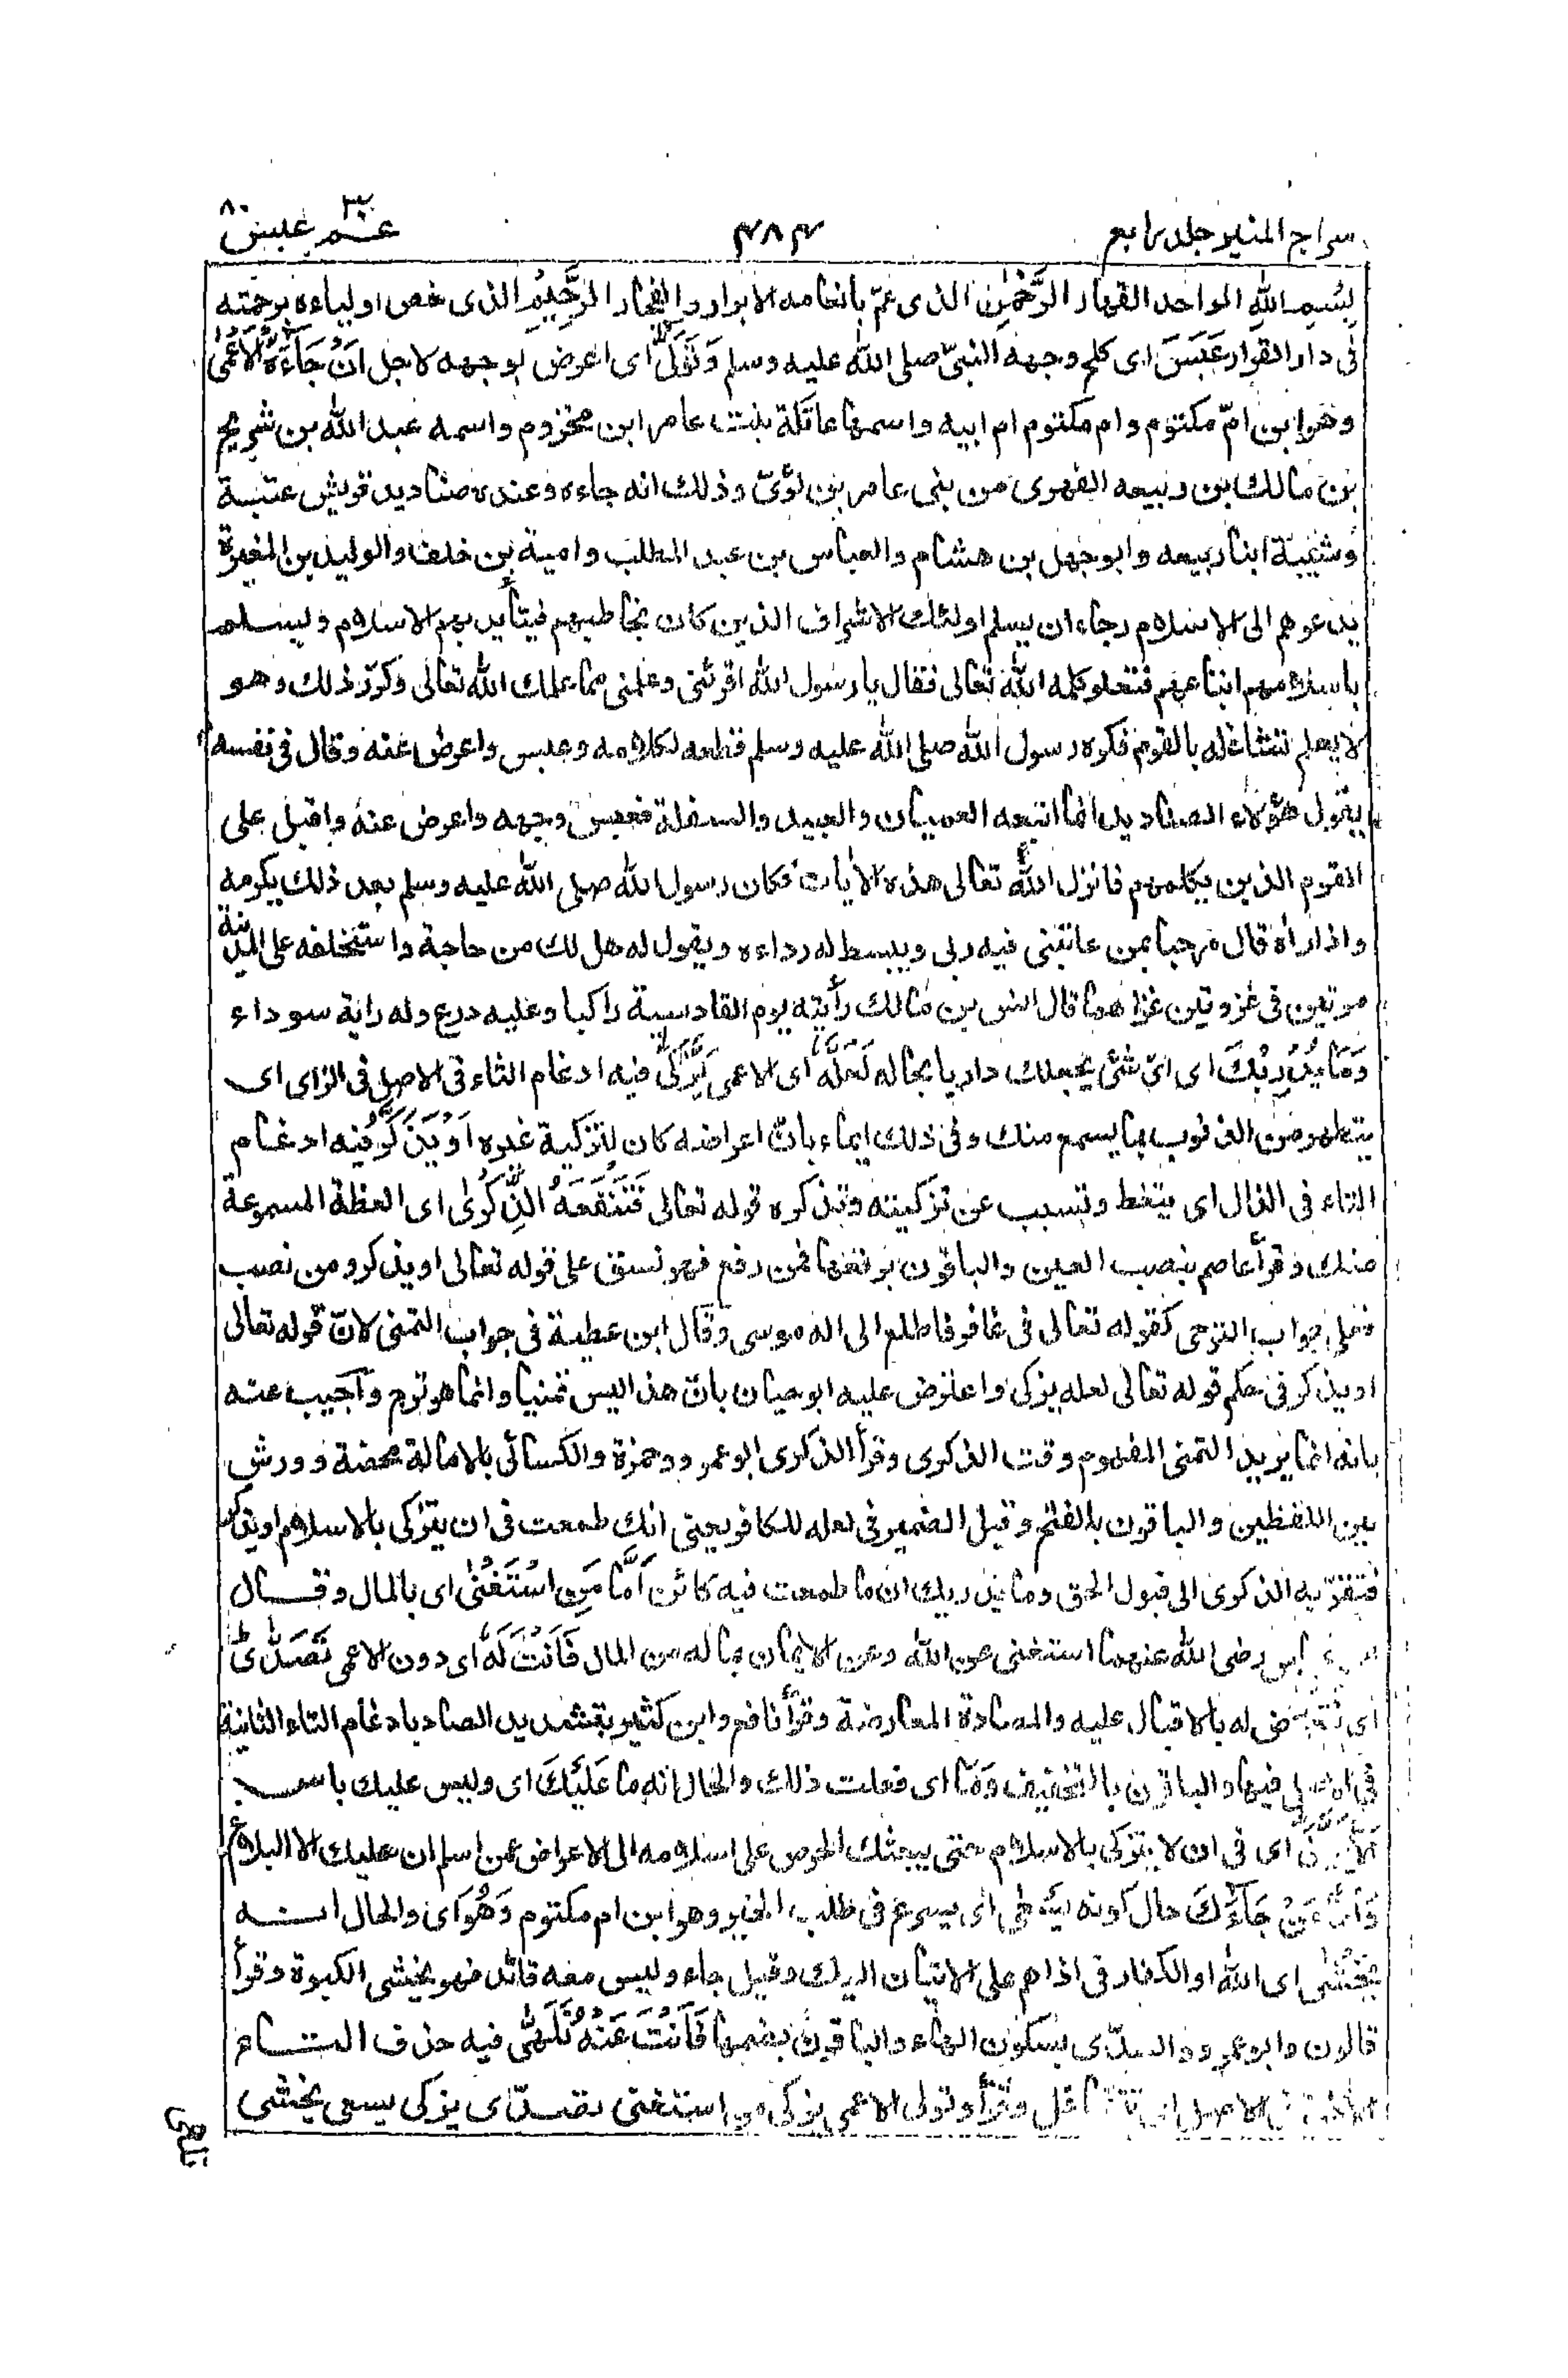 سراج المنير جلد رابع
٤٨٤
عم ٣٠ عبس ٨٠
بِسْمِ اللهِ الواحد القهار الرَّحْمٰنِ الذى عمّ بانعامه الابرار والفجار الرَّحِيْمِ الذى خص اولياءه برحمته
فى دار القرار عَبَسَ اى كلح وجهه النبىّ صلى الله عليه وسلم وَتَوَلّٰى اى اعرض بوجهه لاجل اَنْ جَآءَهُ الْاَعْمٰى
وهو ابن امّ مكتوم وام مكتوم ام ابيه واسمها عاتكة بنت عامر ابن مخزوم واسمه عبد الله بن شريح
بن مالك بن ربيعه الفهرى من بنى عامر بن لؤىّ وذلك انه جاءه وعنده صناديد قريش عتبة
وشيبة ابنا ربيعه وابو جهل بن هشام والعباس بن عبد المطلب وامية بن خلف والوليد بن المغيرة
يدعوهم الى الاسلام رجاء ان يسلم اولئك الاشراف الذين كان يخاطبهم فيتأيد بهم الاسلام ويسلم
باسلامهم اتباعهم فتعلو كلمه الله تعالى فقال يا رسول الله اقرئنى وعلمنى مما علمك الله تعالى وكرّر ذلك وهو
لا يعلم تشاغله بالقوم فكره رسول الله صلى الله عليه وسلم قطعه لكلامه وعبس واعرض عنه وقال فى نفسه
يقول هؤلاء الصناديد انما اتبعه العميان والعبيد والسفلة فعبس وجهه واعرض عنه واقبل على
القوم الذين يكلمهم فانزل الله تعالى هذه الأيات فكان رسول الله صلى الله عليه وسلم بعد ذلك يكرمه
واذا رأه قال مرحبا بمن عاتبنى فيه ربى ويبسط له رداءه ويقول له هل لك من حاجة واستخلفه على المدينة
مرتين فى غزوتين غزاهما قال انس بن مالك رأيته يوم القادسية راكبا وعليه درع وله راية سوداء
وَمَا يُدْرِيْكَ اى اىّ شئ يجعلك داريا بحاله لَعَلَّهٗ اى الاعمى يَزَّكّٰى فيه ادغام التاء فى الاصل فى الزاى اى
يتطهر من الذنوب بما يسمع منك وفى ذلك ايماء بانّ اعراضه كان لتزكية غيره اَوْ يَذَّكَّرُ فيه ادغام
التاء فى الذال اى يتعظ وتسبب عن تزكيته وتذكره قوله تعالى فَتَنْفَعَهُ الذِّكْرٰى اى العظة المسموعة
منك وقرأ عاصم بنصب العين والباقون برفعها فمن رفع فهو نسق على قوله تعالى او يذكر ومن نصب
فعلى جواب الترجى كقوله تعالى فى غافر فاطلع الى اله موسى وقال ابن عطية فى جواب التمنى لانّ قوله تعالى
او يذكر فى حكم قوله تعالى لعله يزكى واعترض عليه ابو حيان بانّ هذا ليس تمنيا وانما هو ترج واجيب عنه
بانه انما يريد التمنى المفهوم وقت الذكرى وقرأ الذكرى ابو عمرو وحمزة والكسائى بالامالة محضة وورش
بين اللفظين والباقون بالفتح وقيل الضمير فى لعله للكافر يعنى انك طمعت فى ان يتزكى بالاسلام او يذكر
فتقرّبه الذكرى الى قبول الحق وما يدريك ان ما طمعت فيه كائن اَمَّا مَنِ اسْتَغْنٰى اى بالمال وقال
ابن عباس رضى الله عنهما استغنى عن الله وعن الايمان بما له من المال فَاَنْتَ لَهٗ اى دون الاعمى تَصَدّٰى
اى تتعرض له بالاقبال عليه والمصادة المعارضة وقرأ نافع وابن كثير بتشديد الصاد بادغام التاء الثانية
فى الاصل فيها والباقون بالتخفيف وَمَا اى فعلت ذلك والحال انه ما عَلَيْكَ اى وليس عليك باس
اَلَّا يَزَّكّٰى اى فى ان لا يتزكى بالاسلام حتى يبعثك الحرص على اسلامه الى الاعراض عمن اسلم ان عليك الا البلاغ
وَاَمَّا مَنْ جَآءَكَ حال كونه يَسْعٰى اى يسرع فى طلب الخير وهو ابن ام مكتوم وَهُوَ اى والحال انه
يَخْشٰى اى الله او الكفار فى اذاهم على الاتيان اليك وقيل جاء وليس معه قائد فهو يخشى الكبوة وقرأ
قالون وابو عمرو والسدّى بسكون الهاء والباقون بضمها فَاَنْتَ عَنْهُ تَلَهّٰى فيه حذف التاء
الاخرى فى الاصل اى تتشاغل وقرأ وتولى الاعمى يزكى من استغنى تصدّى يزكى يسعى يخشى
تلهى